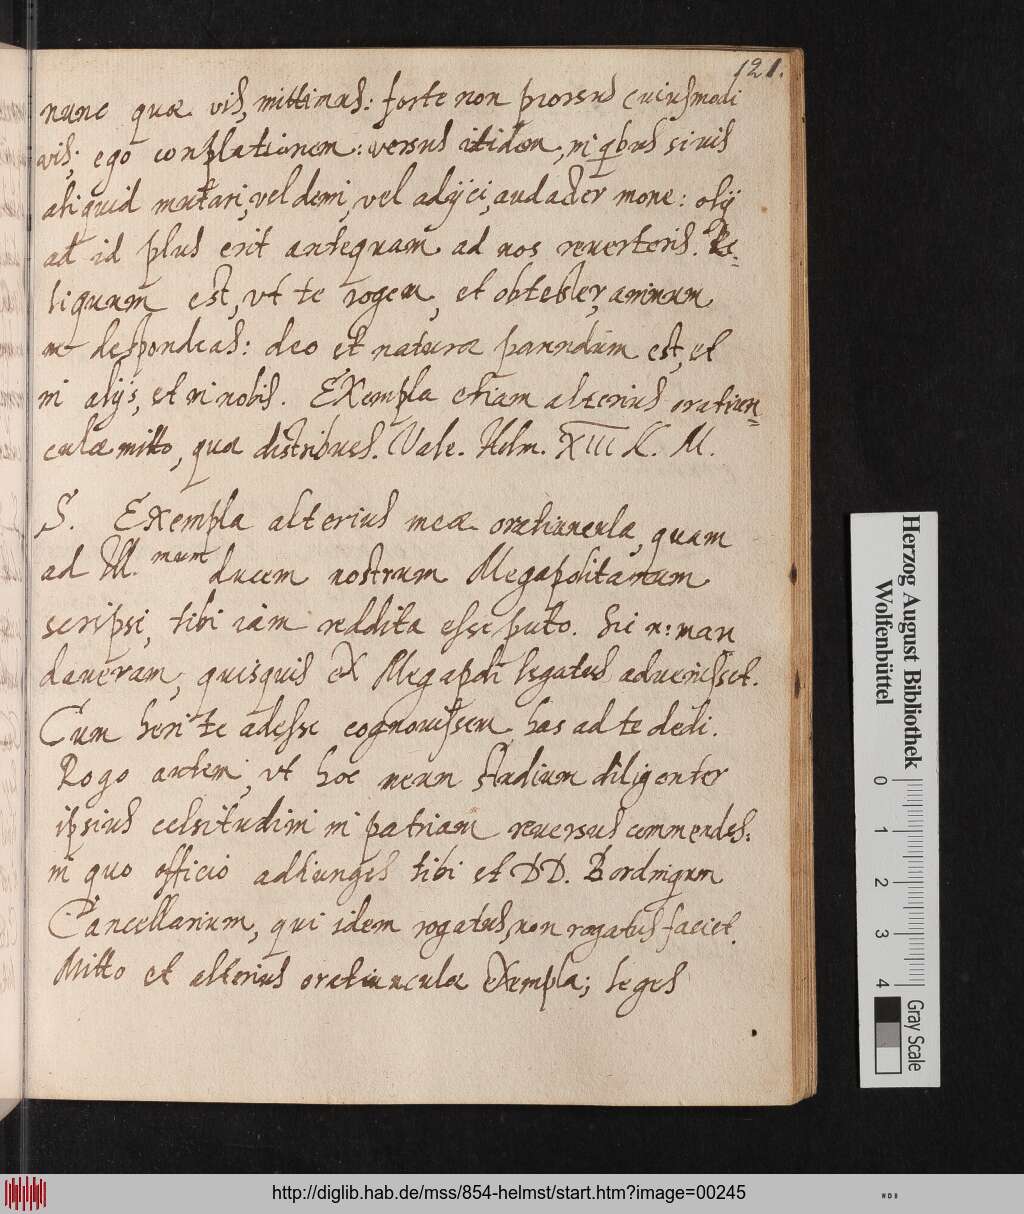 121.
nunc quæ vis, mittimus: forte non prorsus cuiusmodi
vis; ego conplationem: versus itidem, in qbus si vis
aliquid mutari, vel demi, vel adijci, audacter mone: olij
ad id plus erit antequam ad nos reverteris. Re-
liquum est, vt te rogem, et obtester, animum
ne despondeas: deo et naturæ parendum est, et
in alijs, et in nobis. EXempla etiam alterius oratiun=
culæ mitto, quæ distribues. Vale. Helm. XIII K. M.
S. EXempla alterius meæ oratiuncula, quam
ad Ill.mum ducem nostrum Megapolitanum
scripsi, tibi iam reddita esse puto. Sic n: man
daveram, quisquis eX Megapoli legatus advenisset.
Cum heri te adesse cognovissem has ad te dedi.
Rogo autem, vt hoc meum studium diligenter
ipsius celsitudini in patriam reversus commendes:
in quo officio adiunges tibi et DD. Bordingum
Cancellarium, qui idem rogatus, non rogatus faciet.
Mitto et alterius oratiunculæ eXempla; leges
Herzog August Bibliothek
Wolfenbüttel
0 1 2 3 4
Gray Scale
http://diglib.hab.de/mss/854-helmst/start.htm?image=00245